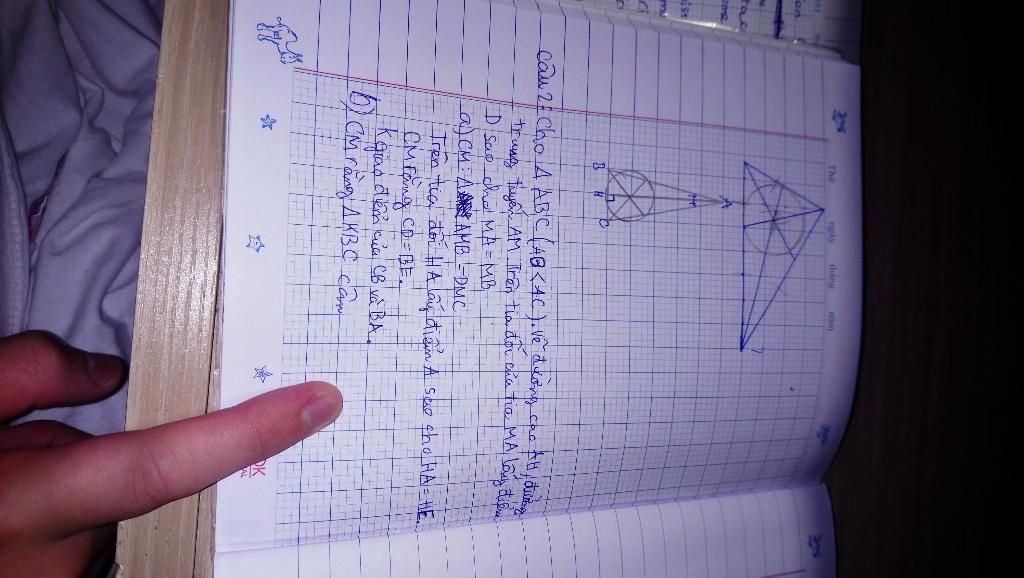 Thứ ngày tháng năm
A
H
B H C
Câu 2: Cho Δ ABC (AB < AC). Vẽ đường cao AH, đường
trung tuyến AM. Trên tia đối của tia MA lấy điểm
D sao cho MA = MB
a) CM: Δ AMB = DMC
Trên tia đối HA lấy điểm A sao cho HA = HE.
CM rằng CD = BE.
K giao điểm của CB và BA.
b) CM rằng Δ KBC cân